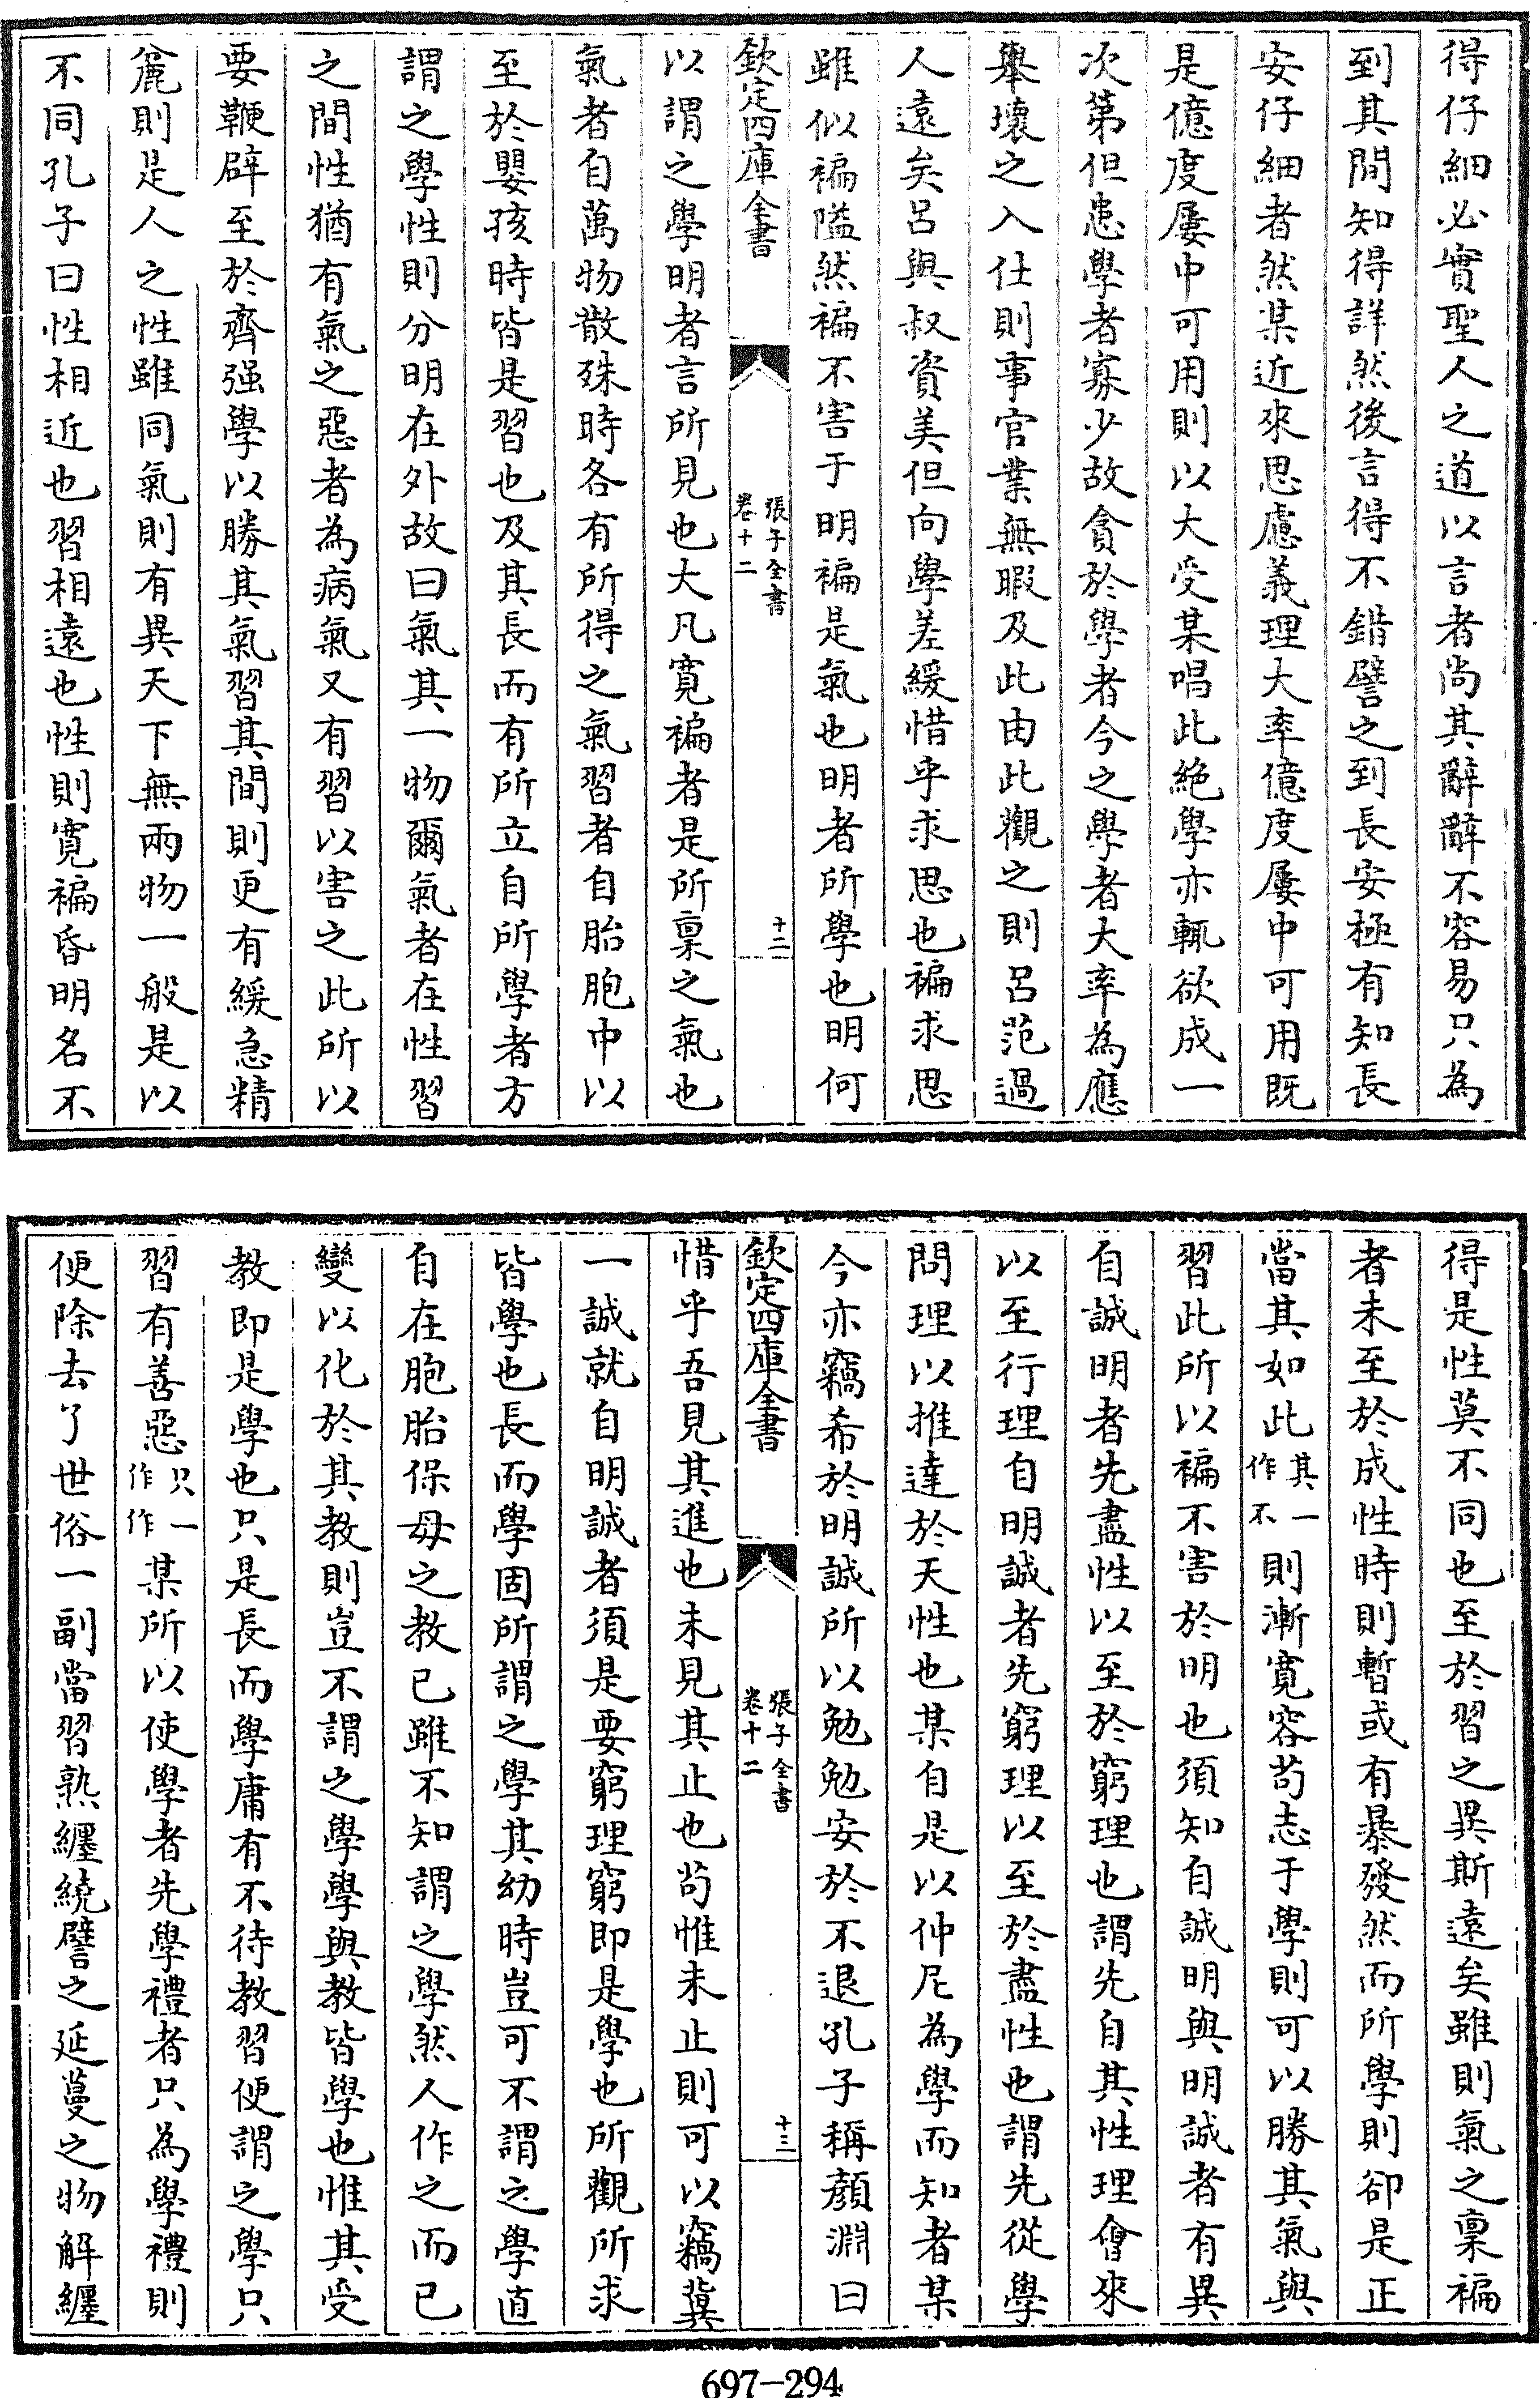 得仔細必實聖人之道以言者尚其辭辭不容易只為
到其間知得詳然後言得不錯譬之到長安極有知長
安仔細者然某近來思慮義理大率億度屢中可用既
是億度屢中可用則以大受某唱此絶學亦輒欲成一
次第但患學者寡少故貪於學者今之學者大率為應
舉壞之入仕則事官業無暇及此由此觀之則呂范過
人遠矣呂與叔資美但向學差緩惜乎求思也褊求思
雖似褊隘然褊不害于明褊是氣也明者所學也明何
欽定四庫全書
張子全書
卷十二
十二
以謂之學明者言所見也大凡寛褊者是所稟之氣也
氣者自萬物散殊時各有所得之氣習者自胎胞中以
至於嬰孩時皆是習也及其長而有所立自所學者方
謂之學性則分明在外故曰氣其一物爾氣者在性習
之間性猶有氣之惡者為病氣又有習以害之此所以
要鞭辟至於齊强學以勝其氣習其間則更有緩急精
麄則是人之性雖同氣則有異天下無兩物一般是以
不同孔子曰性相近也習相遠也性則寛褊昏明名不
得是性莫不同也至於習之異斯遠矣雖則氣之稟褊
者未至於成性時則暫或有暴發然而所學則卻是正
當其如此其一作不則漸寛容苟志于學則可以勝其氣與
習此所以褊不害於明也須知自誠明與明誠者有異
自誠明者先盡性以至於窮理也謂先自其性理會來
以至行理自明誠者先窮理以至於盡性也謂先從學
問理以推達於天性也某自是以仲尼為學而知者某
今亦竊希於明誠所以勉勉安於不退孔子稱顔淵曰
欽定四庫全書
張子全書
卷十二
十三
惜乎吾見其進也未見其止也苟惟未止則可以竊冀
一誠就自明誠者須是要窮理窮即是學也所觀所求
皆學也長而學固所謂之學其幼時豈可不謂之學直
自在胞胎保母之教已雖不知謂之學然人作之而已
變以化於其教則豈不謂之學學與教皆學也惟其受
教即是學也只是長而學庸有不待教習便謂之學只
習有善惡只一作作某所以使學者先學禮者只為學禮則
便除去了世俗一副當習熟纏繞譬之延蔓之物解纏
697-294